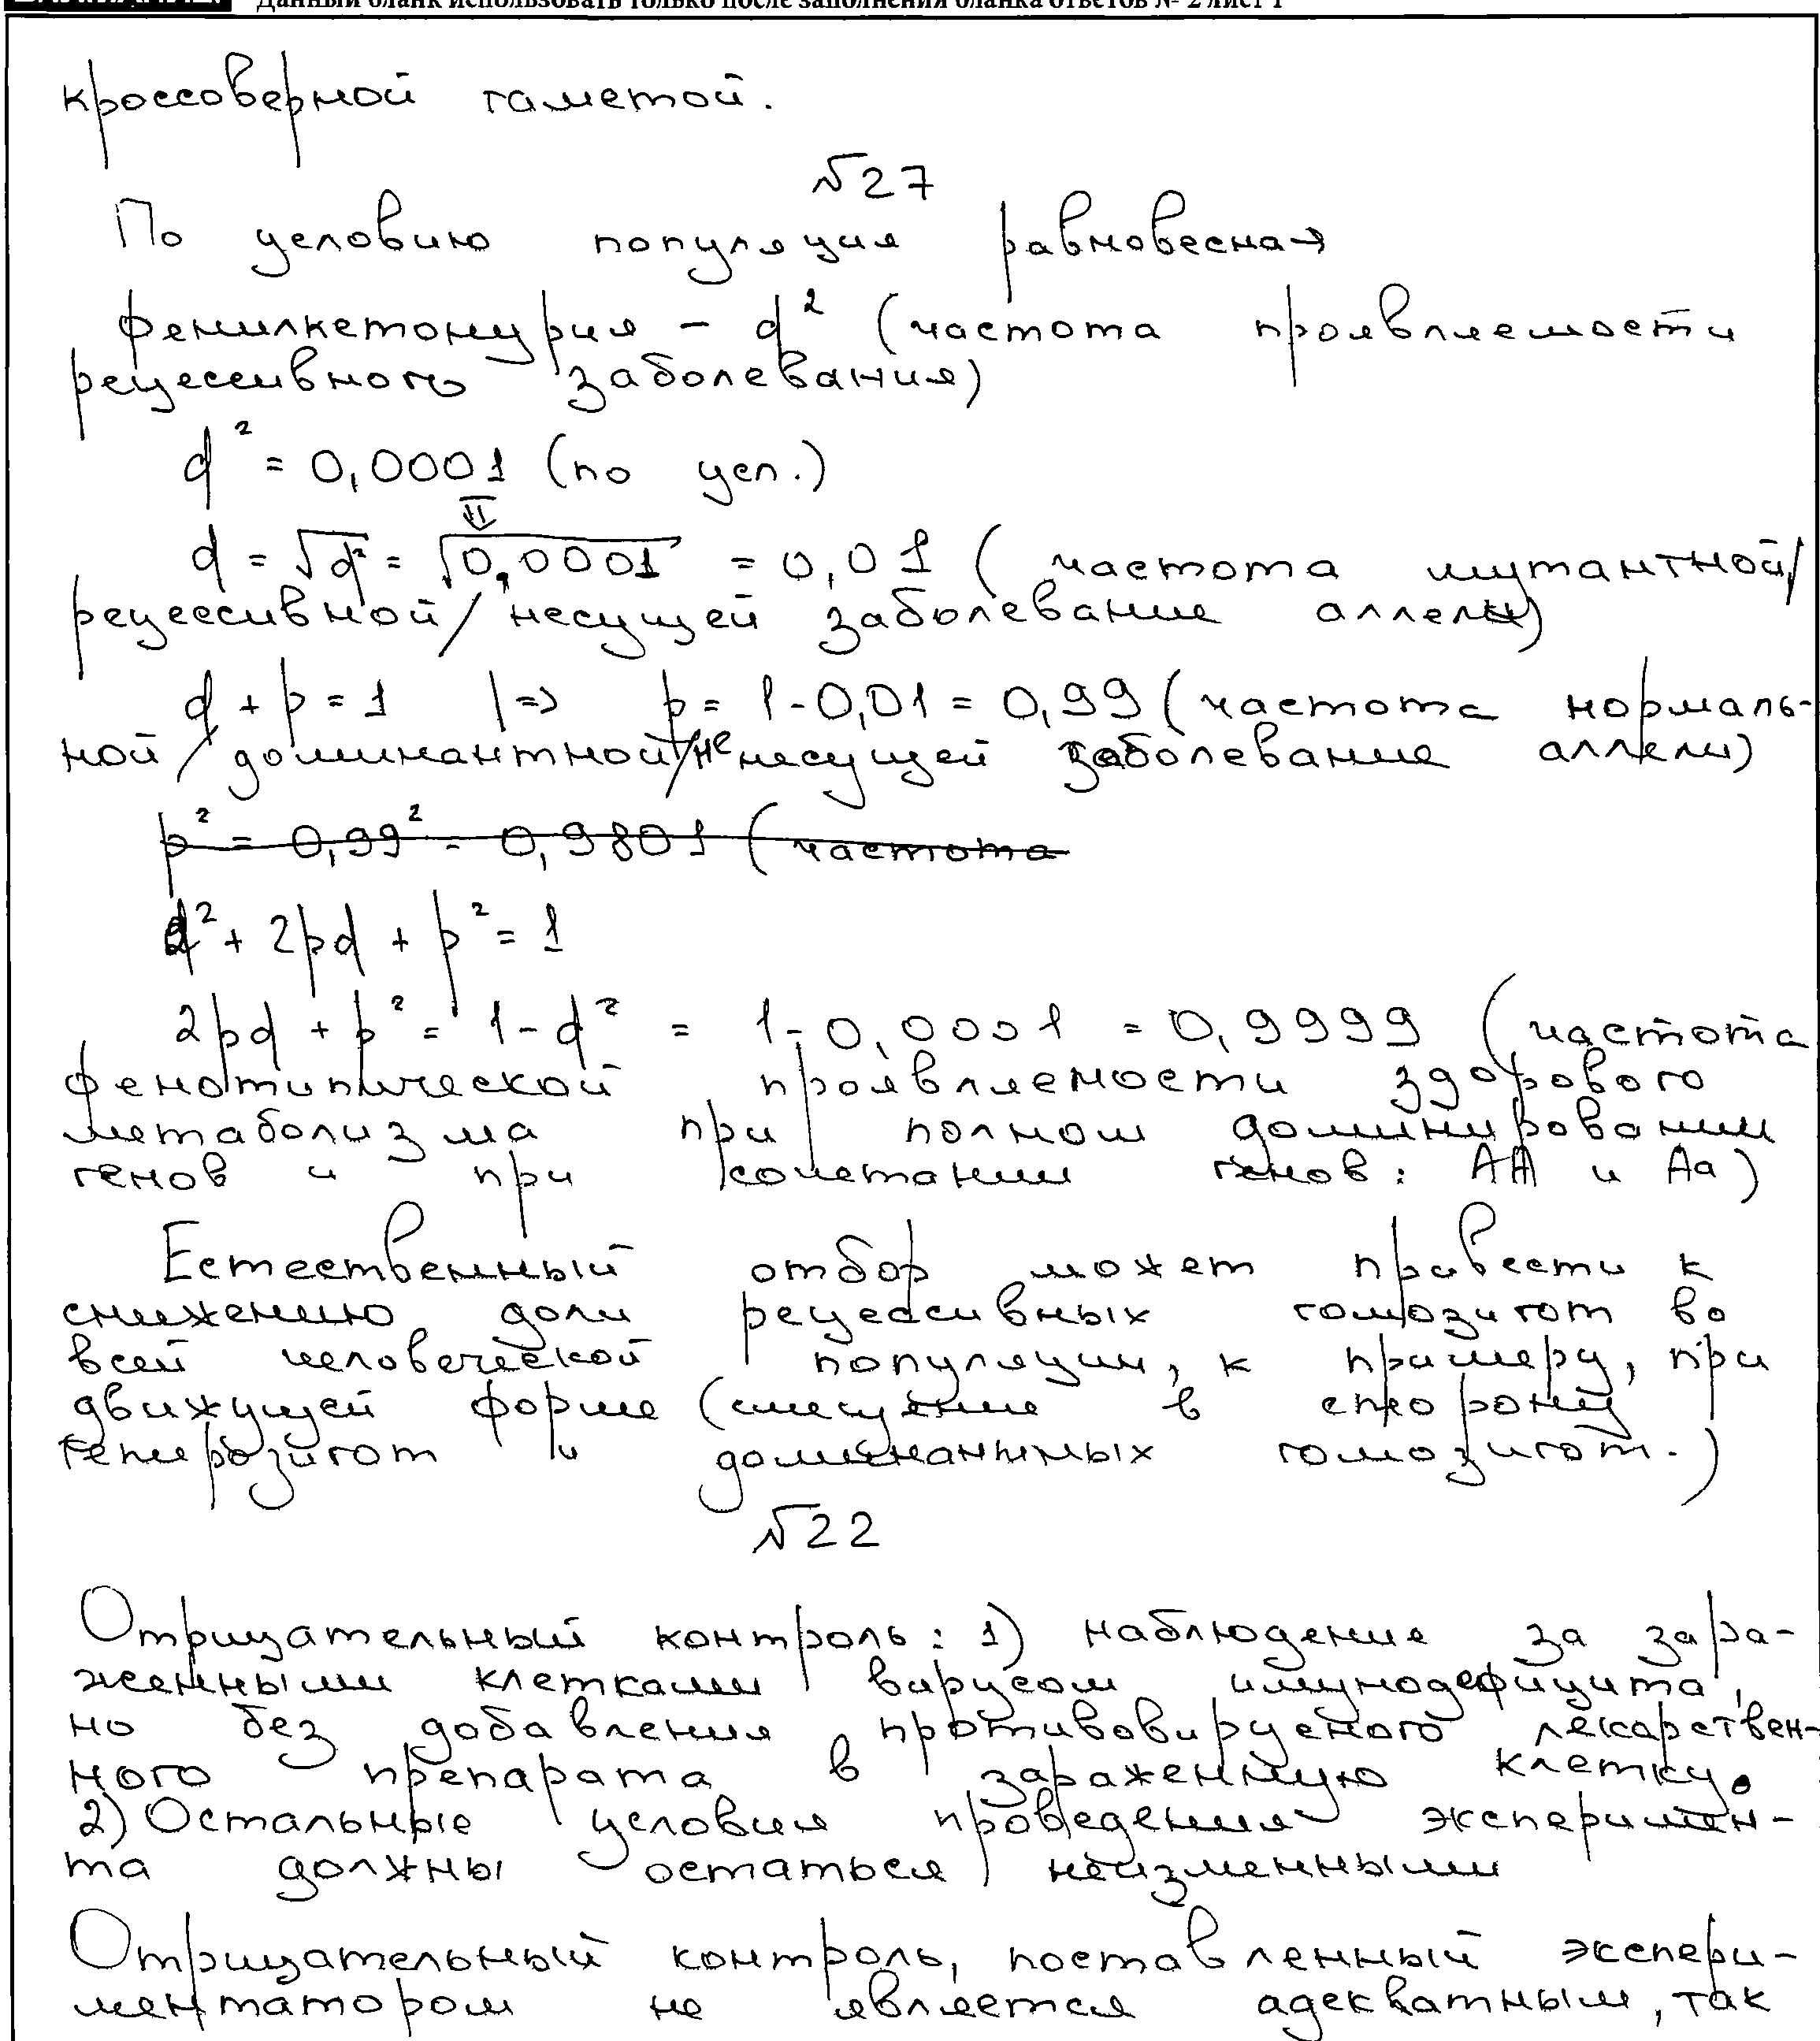 Данный бланк использовать только после заполнения бланка ответов № 2 лист 1
кроссоверной гаметой.
№27
По условию популяция равновесна→
фенилкетонурия – q² (частота проявляемости
рецессивного заболевания)
q² = 0,0001 (по усл.)
⇓
q = √q² = √0,0001 = 0,01 (частота мутантной/
рецессивной/несущей заболевание аллели)
q + p = 1 |=> p = 1-0,01 = 0,99 (частота нормаль-
ной/доминантной/не несущей заболевание аллели)
p² = 0,99² = 0,9801 (частота
q² + 2pq + p² = 1
2pq + p² = 1-q² = 1-0,0001 = 0,9999 (частота
фенотипической проявляемости здорового
метаболизма при полном доминировании
генов и при сочетании генов: АА и Аа)
Естественный отбор может привести к
снижению доли рецессивных гомозигот во
всей человеческой популяции, к примеру, при
движущей форме (смещение в сторону
гетерозигот и доминантных гомозигот.)
№22
Отрицательный контроль: 1) наблюдение за зара-
женными клетками вирусом имунодефицита,
но без добавления противовирусного лекарствен-
ного препарата в зараженную клетку.
2) Остальные условия проведения эксперимен-
та должны остаться неизменными
Отрицательный контроль, поставленный экспери-
ментатором не является адекватным, так